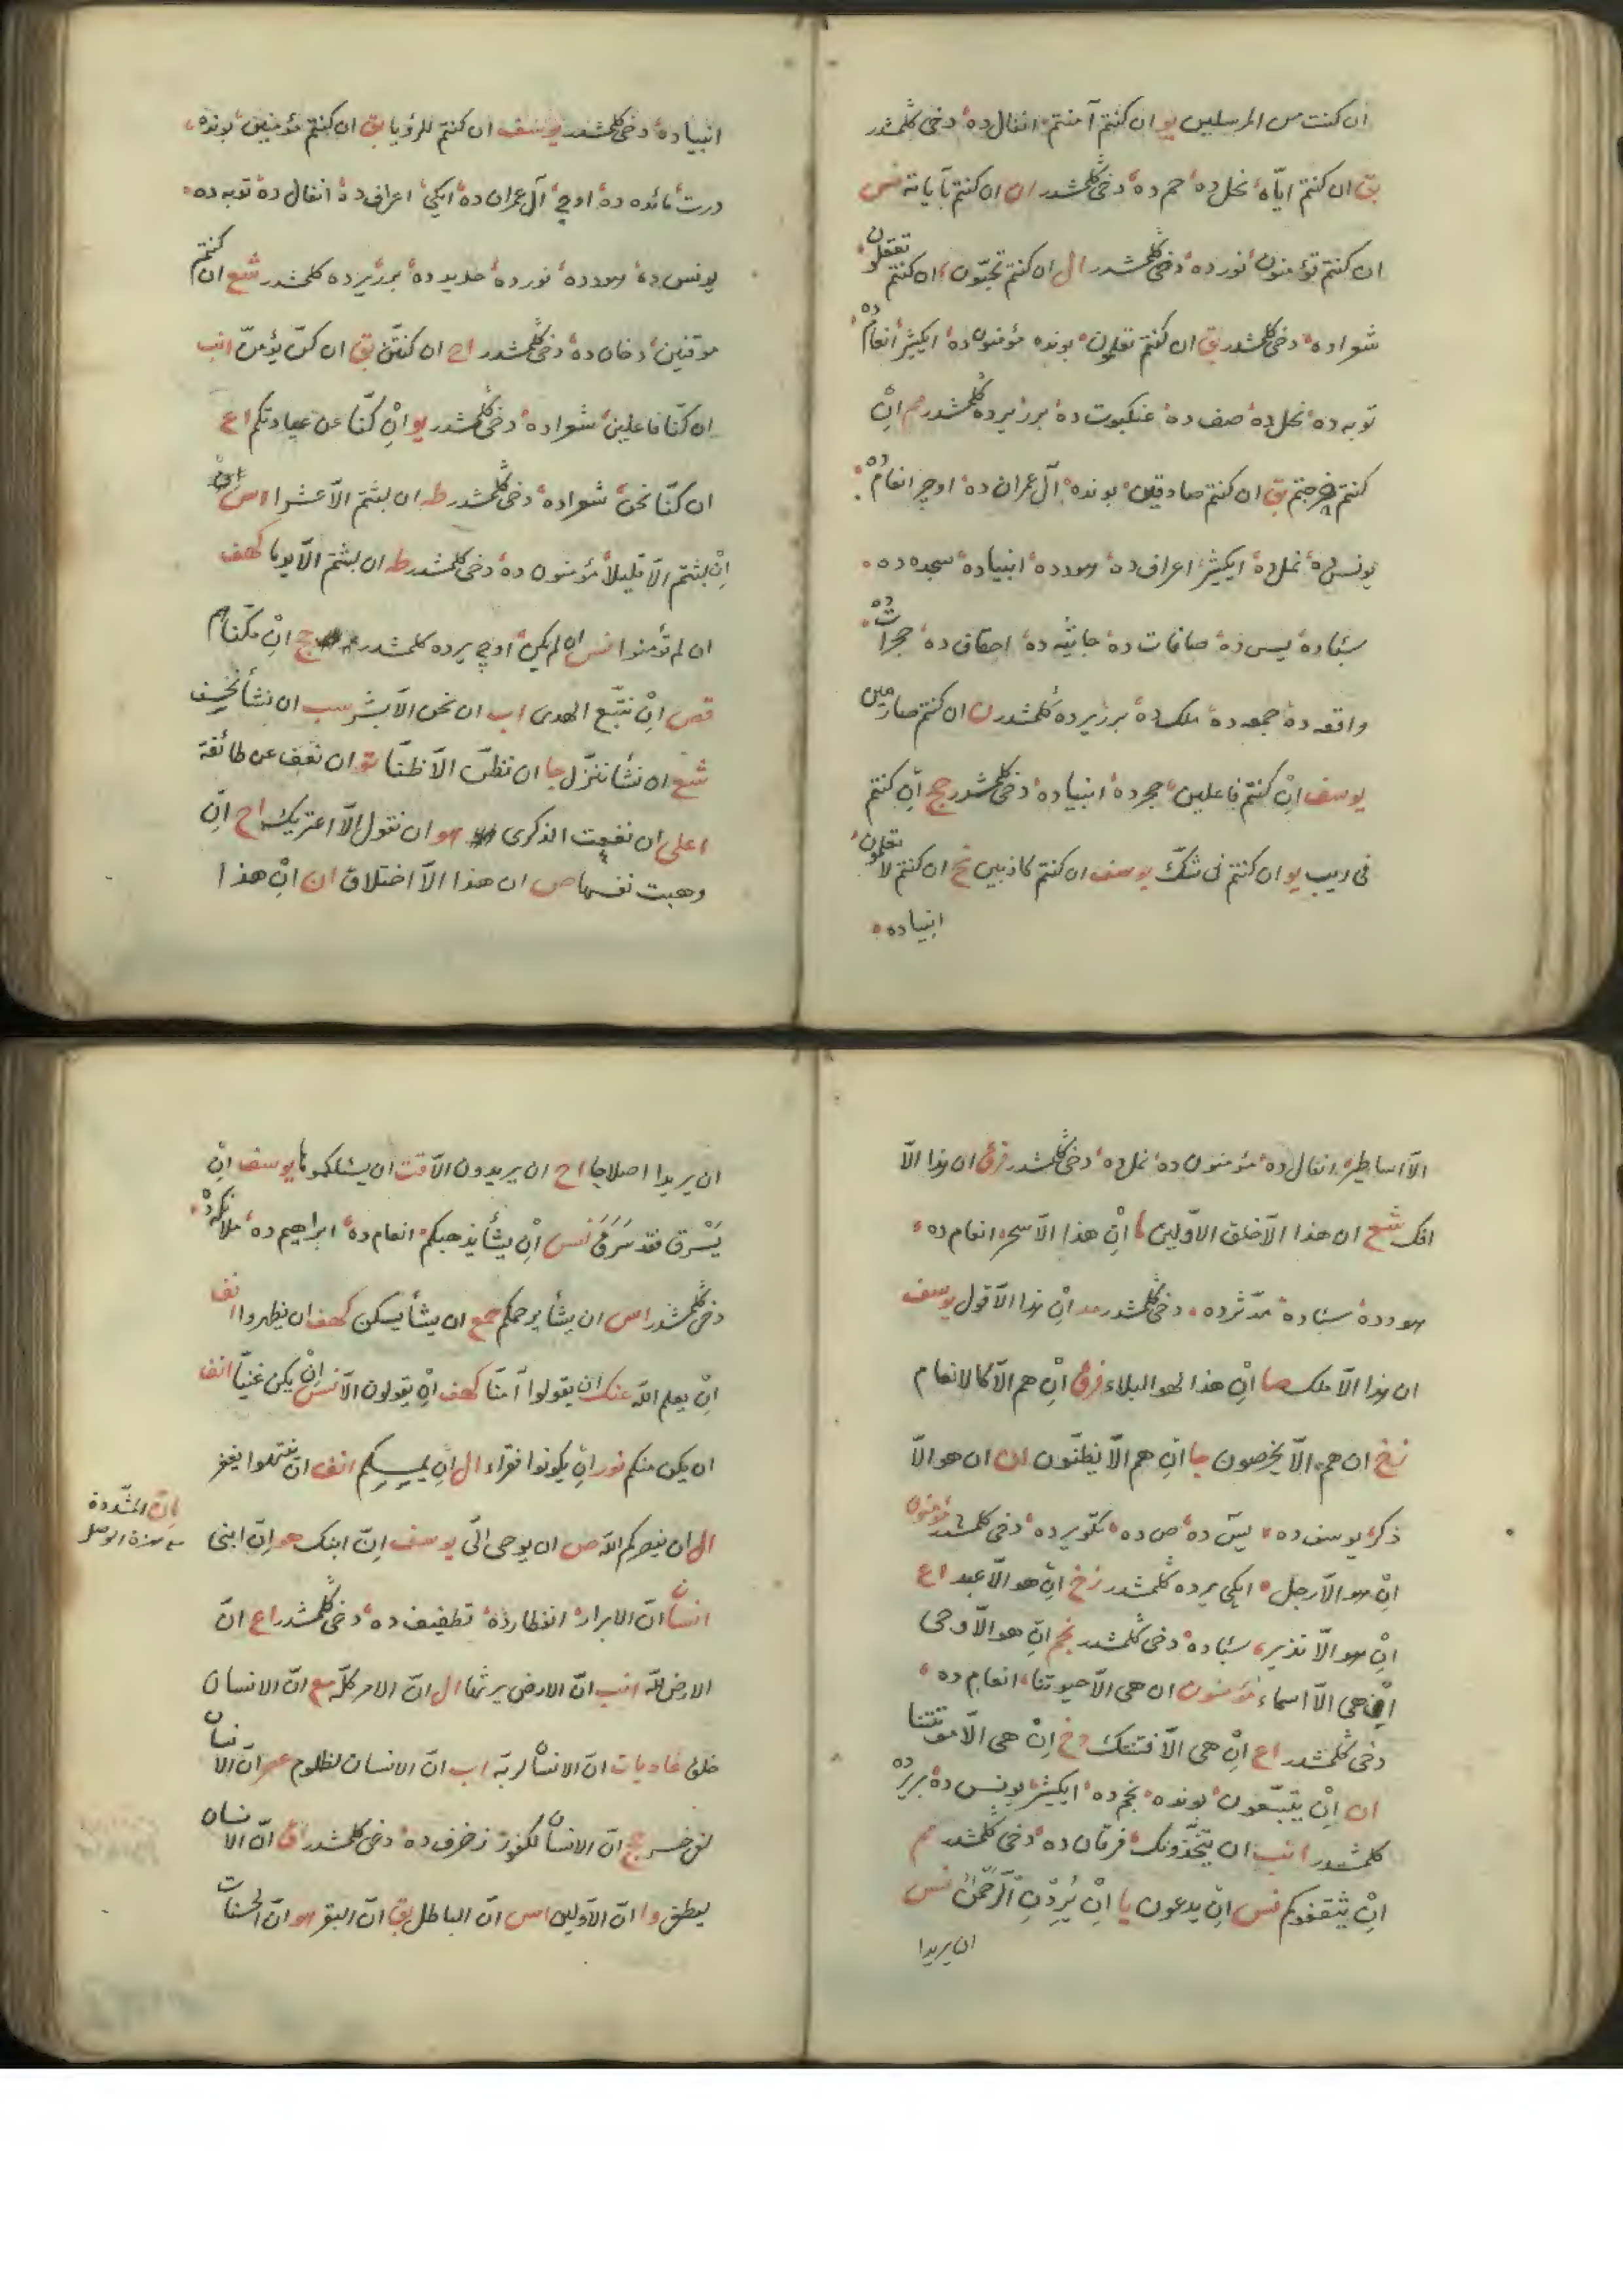 ان كنت من المرسلين يو ان كنتم آمنتم انفال ده دخى كلمشدر
بق ان كنتم اياه نحل ده حم ده دخى كلمشدر ان كنتم بآياته نس
ان كنتم تؤمنون نور ده دخى كلمشدر ال ان كنتم تحبون ان كنتم تعقلون
شعراده دخى كلمشدر بق ان كنتم تعلمون بونده مؤمنون ده ايكيشر انعام ده
توبه ده نحل ده صف ده عنكبوت ده برر يرده كلمشدر مم ان
كنتم خرجتم بق ان كنتم صادقين بونده آل عمران ده اوچر انعام ده
يونس ده نمل ده ايكيشر اعراف ده هود ده انبياده سجده ده
سبأده يس ده صافات ده جاثيه ده احقاف ده حجرات ده
واقعه ده جمعه ده ملك ده برر يرده كلمشدر ن ان كنتم صارمين
يوسف ان كنتم فاعلين حجر ده انبياده دخى كلمشدر حج ان كنتم
فى ريب يو ان كنتم فى شك يوسف ان كنتم كاذبين نح ان كنتم لا تعلمون
انبياده
انبياده دخى كلمشدر يوسف ان كنتم للرؤيا بق ان كنتم مؤمنين بونده
درت مائده ده اوچ آل عمران ده ايكى اعراف ده انفال ده توبه ده
يونس ده هود ده نور ده حديد ده برر يرده كلمشدر شع ان كنتم
موقنين دخان ده دخى كلمشدر اح ان كنتن بق ان كن يؤمن انب
ان كنا فاعلين شعراده دخى كلمشدر يو ان كنا عن عبادتكم اع
ان كنا نحن شعراده دخى كلمشدر طه ان لبثتم الا عشرا اس
ان لبثتم الا قليلا مؤمنون ده دخى كلمشدر طه ان لبثتم الا يوما كهف
ان لم تؤمنوا نس ان لم يكن اوچ يرده كلمشدر حج ان مكناهم
قص ان نتبع الهدى اب ان نحن الا بشر سب ان نشأ نخسف
شع ان نشأ ننزل جا ان نظن الا ظنا تو ان نعف عن طائفة
اعلى ان نفعت الذكرى هو ان نقول الا اعتريك اح ان
وهبت نفسها ص ان هذا الا اختلاق ان ان هذا
الا اساطير انفال ده مؤمنون ده نمل ده دخى كلمشدر فرق ان هذا الا
افك شع ان هذا الا خلق الاولين ما ان هذا الا سحر انعام ده
هود ده سبأده مدثرده دخى كلمشدر مد ان هذا الا قول يوسف
ان هذا الا ملك صا ان هذا لهو البلاء فرق ان هم الا كالانعام
زخ ان هم الا يخرصون جا ان هم الا يظنون ان ان هو الا
ذكر يوسف ده يس ده ص ده تكوير ده دخى كلمشدر مؤمنون
ان هو الا رجل ايكى يرده كلمشدر زخ ان هو الا عبد اع
ان هو الا نذير سبأده دخى كلمشدر نجم ان هو الا وحى
ان هى الا اسماء مؤمنون ان هى الا حيوتنا انعام ده
دخى كلمشدر اع ان هى الا فتنتك دخ ان هى الا موتتنا
ان ان يتبعون بونده نجم ده ايكيشر يونس ده برر يرده
كلمشدر انب ان يتخذونك فرقان ده دخى كلمشدر مم
ان يثقفوكم نس ان يدعون يا ان يردن الرحمن نس
ان يريدا
ان يريدا اصلاحا اح ان يريدون الا قت ان يسئلكموها يوسف ان
يسرق فقد سرق نس ان يشأ يذهبكم انعام ده ابراهيم ده ملائكه ده
دخى كلمشدر اس ان يشأ يرحمكم جمع ان يشأ يسكن كهف ان يظهروا انف
ان يعلم الله عنك ان يقولوا آمنا كهف ان يقولون الا نس ان يكن غنيا انف
ان يكن منكم نور ان يكونوا فقراء ال ان يمسسكم انف ان ينتهوا يغفر
ال ان ينصركم الله ص ان يوحى الى يوسف ان ابنك هو ان ابنى
باب ان المشددة
انسان ان الابرار انفطارده تطفيف ده دخى كلمشدر اع ان
الارض لله انب ان الارض يرثها ال ان الامر كله مع ان الانسان
خلق عاديات ان الانسان لربه اب ان الانسان لظلوم عصر ان الانسان
لفى خسر حج ان الانسان لكفور زخرف ده دخى كلمشدر اق ان الانسان
ليطغى وا ان الاولين اس ان الباطل بق ان البقر هو ان الحسنات